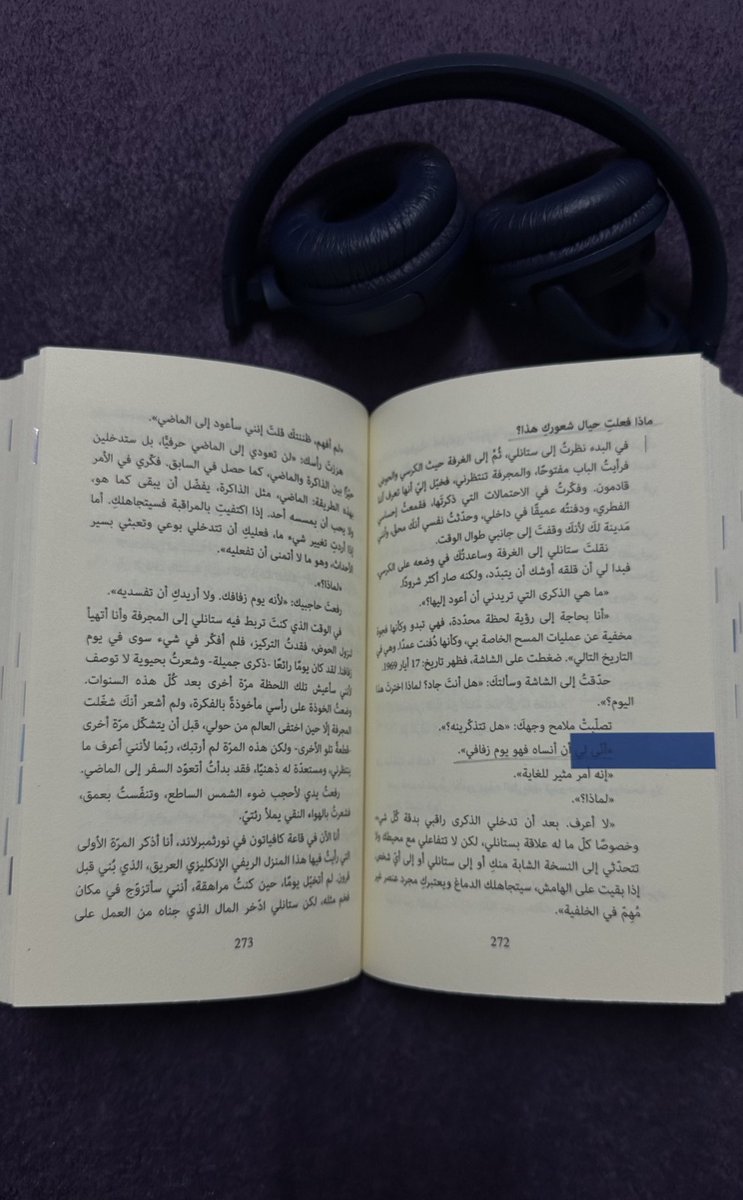 ماذا فعلتِ حيال شعوركِ هذا؟
في البدء نظرتُ إلى ستانلي، ثُمّ إلى الغرفة حيثُ الكرسي والحوض
فرأيتُ الباب مفتوحًا، والمجرفة تنتظرني، فخيّل إليّ أنها تعرف أننا
قادمون. وفكّرتُ في الاحتمالات التي ذكرتَها، فقمعتُ إحساسي
الفطري، ودفنتُه عميقًا في داخلي، وحدّثتُ نفسي أنك محق، وأنني
مَدينة لكَ لأنكَ وقفتَ إلى جانبي طوال الوقت.
نقلتَ ستانلي إلى الغرفة وساعدتُكَ في وضعه على الكرسي
فبدا لي أن قلقه أوشك أن يتبدّد، ولكنه صار أكثر شرودًا.
«ما هي الذكرى التي تريدني أن أعود إليها؟».
«أنا بحاجة إلى رؤية لحظة محدّدة، فهي تبدو وكأنها فجوة
مخفية عن عمليات المسح الخاصة بي، وكأنها دُفنت عمدًا. وهي في
التاريخ التالي». ضغطت على الشاشة، فظهر تاريخ: 17 أيار 1969.
حدّقتُ إلى الشاشة وسألتكَ: «هل أنتَ جاد؟ لماذا اخترتَ هذا
اليوم؟».
تصلّبتْ ملامح وجهكَ: «هل تتذكّرينه؟».
«أنّى لي أن أنساه فهو يوم زفافي».
«إنه أمر مثير للغاية».
«لماذا؟».
«لا أعرف. بعد أن تدخلي الذكرى راقبي بدقة كُلّ شيء
وخصوصًا كلّ ما له علاقة بستانلي، لكن لا تتفاعلي مع محيطك ولا
تتحدّثي إلى النسخة الشابة منكِ أو إلى ستانلي أو إلى أيّ شخص.
إذا بقيت على الهامش، سيتجاهلك الدماغ ويعتبركِ مجرد عنصر غير
مُهِمّ في الخلفية».
272
«لم أفهم، ظننتكَ قلتَ إنني سأعود إلى الماضي».
هززتَ رأسك: «لن تعودي إلى الماضي حرفيًّا، بل ستدخلين
حيّزًا بين الذاكرة والماضي، كما حصل في السابق. فكّري في الأمر
بهذه الطريقة: الماضي، مثل الذاكرة، يفضّل أن يبقى كما هو،
ولا يحب أن يمسسه أحد. إذا اكتفيتِ بالمراقبة فسيتجاهلكِ. أما
إذا أردتِ تغيير شيء ما، فعليكِ أن تتدخلي بوعي وتعبثي بسير
الأحداث، وهو ما لا أتمنى أن تفعليه».
«لماذا؟».
رفعتَ حاجبيك: «لأنه يوم زفافك. ولا أريدكِ أن تفسديه».
في الوقت الذي كنتَ تربط فيه ستانلي إلى المجرفة وأنا أتهيأ
لنزول الحوض، فقدتُ التركيز، فلم أفكّر في شيء سوى في يوم
زفافنا. لقد كان يومًا رائعًا -ذكرى جميلة- وشعرتُ بحيوية لا توصف
لأنني سأعيش تلك اللحظة مرّة أخرى بعد كُلّ هذه السنوات.
وضعتُ الخوذة على رأسي مأخوذةً بالفكرة، ولم أشعر أنكَ شغّلت
المجرفة إلّا حين اختفى العالم من حولي، قبل أن يتشكّل مرّة أخرى
-قطعةً تلو الأخرى- ولكن هذه المرّة لم أرتبك، ربّما لأنني أعرف ما
ينتظرني، ومستعدّة له ذهنيًا، فقد بدأتُ أتعوّد السفر إلى الماضي.
رفعتُ يدي لأحجب ضوء الشمس الساطع، وتنفّستُ بعمق،
فشعرتُ بالهواء النقي يملأ رئتيّ.
أنا الآن في قاعة كافياتون في نورثمبرلاند، أنا أذكر المرّة الأولى
التي رأيتُ فيها هذا المنزل الريفي الإنكليزي العريق، الذي بُني قبل
قرون. لم أتخيّل يومًا، حين كنتُ مراهقة، أنني سأتزوّج في مكان
فخم مثله، لكن ستانلي ادّخر المال الذي جناه من العمل على
273